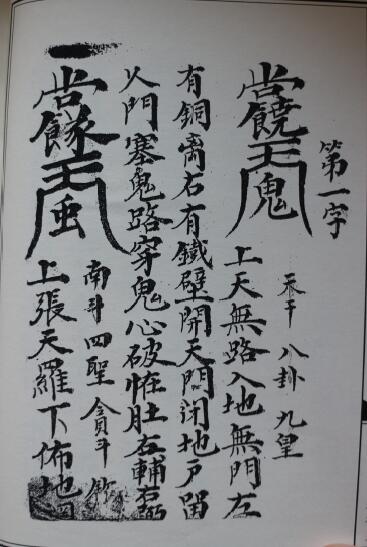 第一字
八卦 九皇
上天無路入地無門左
有銅右有鐵壁開天門闭地户畱
人門塞鬼路穿鬼心破怪肚左輔右弼
南斗四聖貪斗
上張天羅下佈地